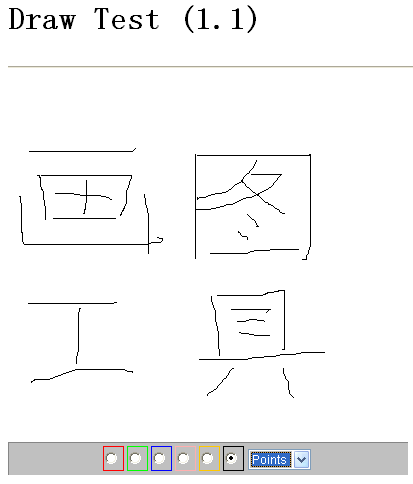 Draw Test (1.1)
画图
工具
Points